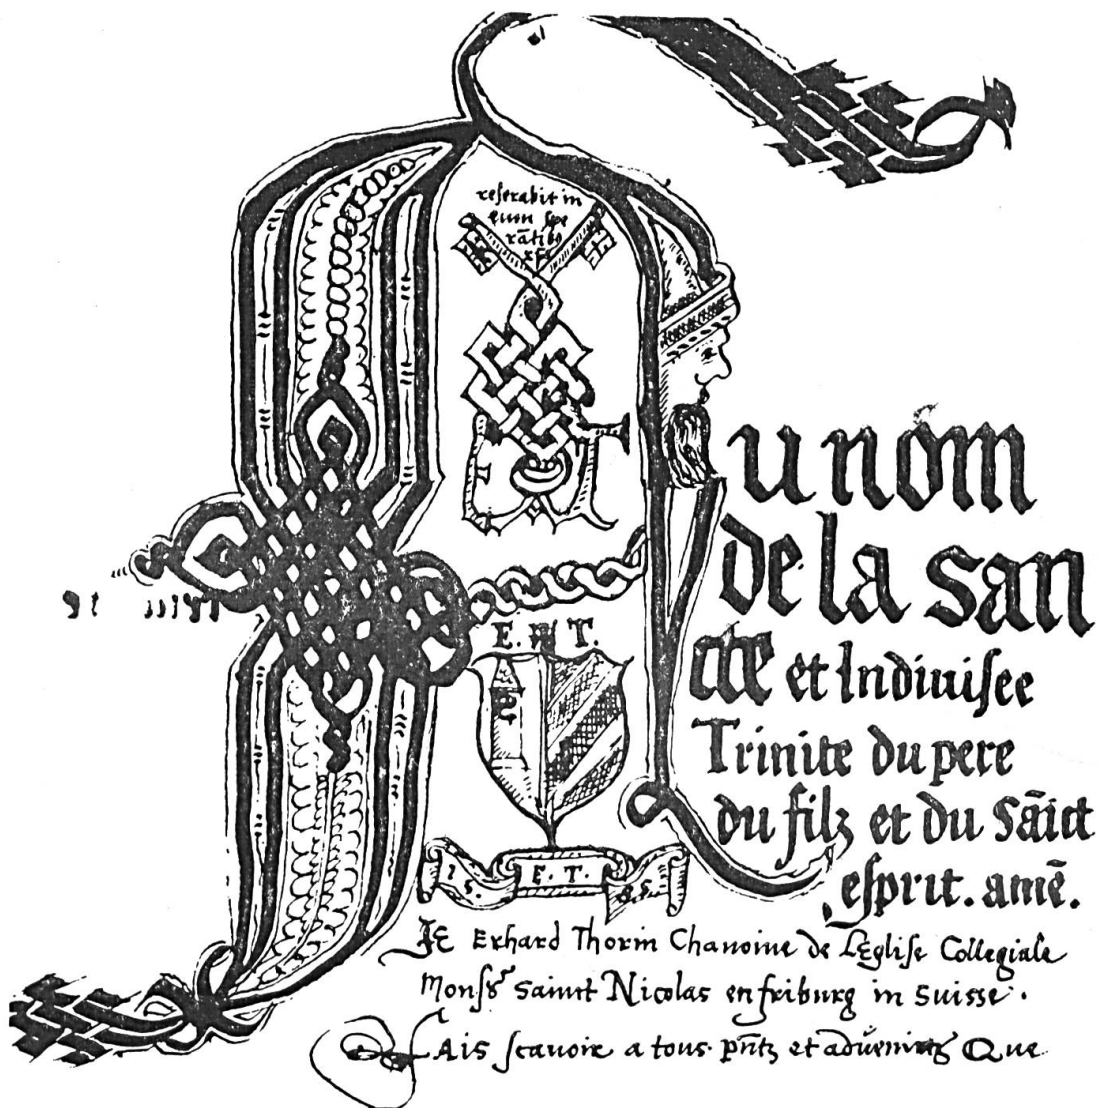 reserabit in
eum spe
rātibꝰ
Au nom
de la san
cte et Indiuisee
Trinite du pere
du filz et du Sāict
esprit. amē.
E. T.
15. E. T. 85.
Je Erhard Thorin Chanoine de LEglise Collegiale
Monsr Sainct Nicolas en friburg in Suisse.
Fais scauoir a tous pñtz et aduenirs Que